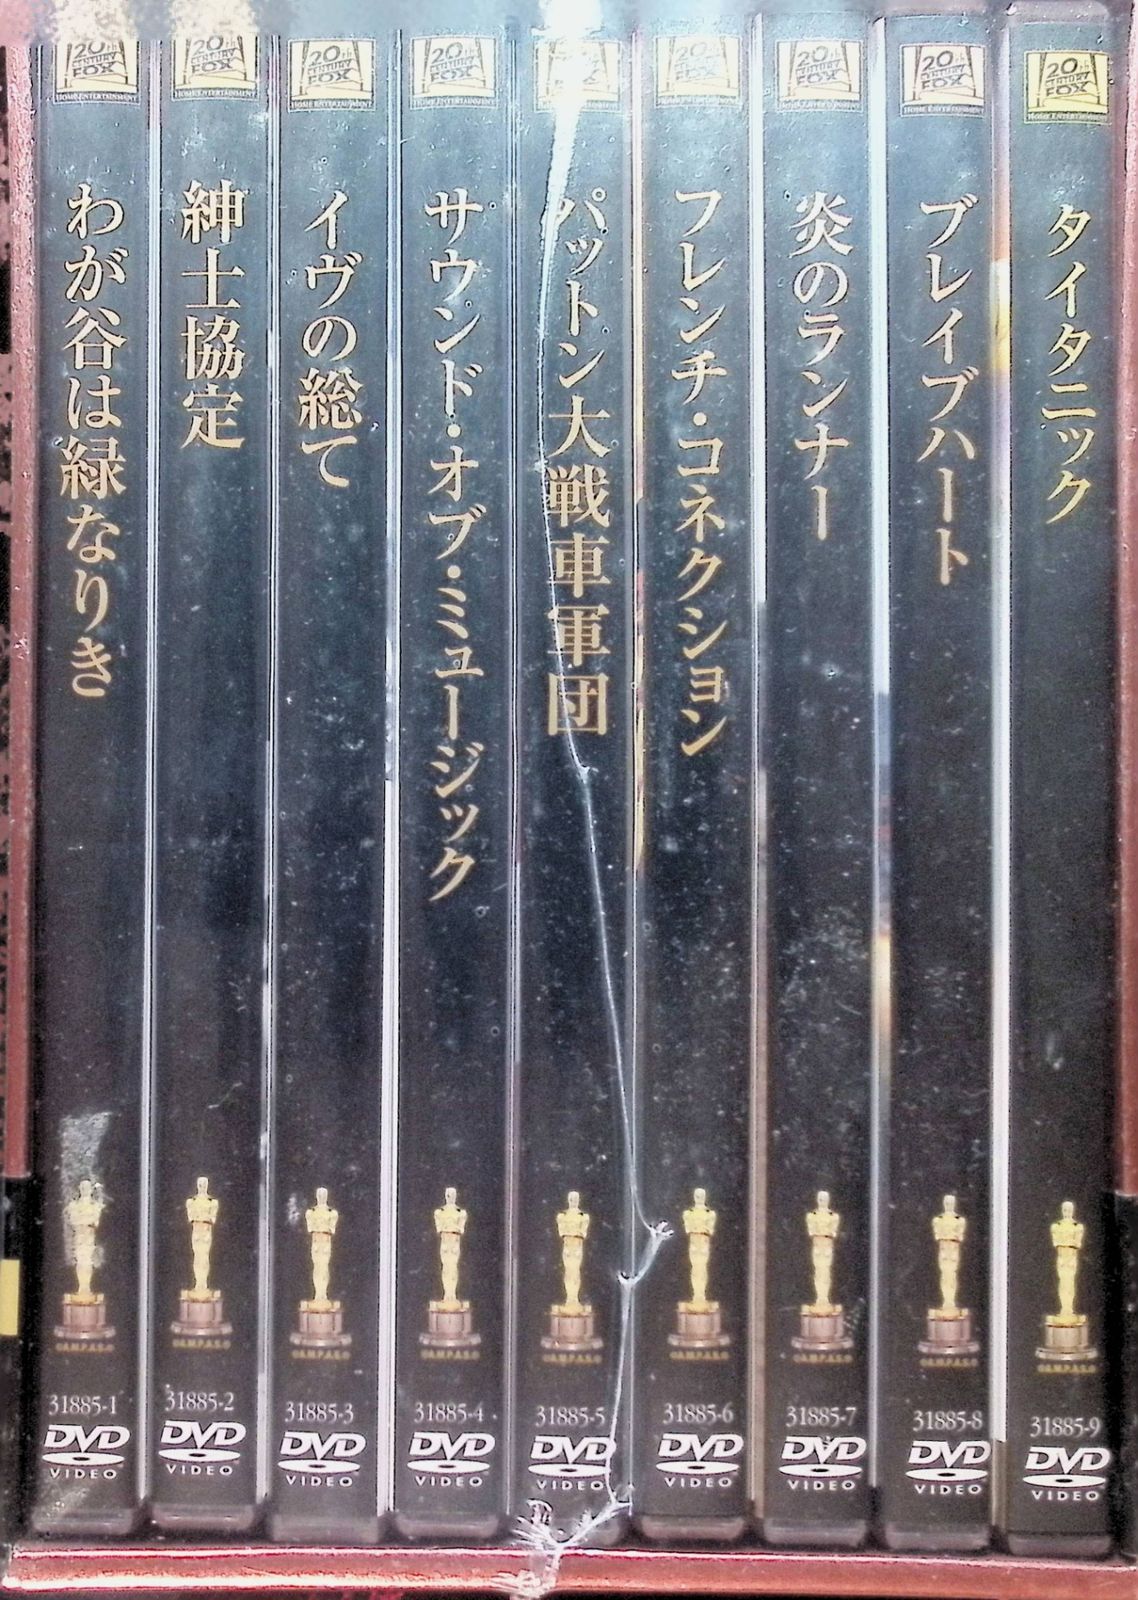 20th CENTURY FOX
HOME ENTERTAINMENT
わが谷は緑なりき
©A.M.P.A.S.®
31885-1
DVD
VIDEO
20th CENTURY FOX
HOME ENTERTAINMENT
紳士協定
©A.M.P.A.S.®
31885-2
DVD
VIDEO
20th CENTURY FOX
HOME ENTERTAINMENT
イヴの総て
©A.M.P.A.S.®
31885-3
DVD
VIDEO
20th CENTURY FOX
HOME ENTERTAINMENT
サウンド・オブ・ミュージック
©A.M.P.A.S.®
31885-4
DVD
VIDEO
パットン大戦車軍団
©A.M.P.A.S.®
31885-5
DVD
VIDEO
20th CENTURY FOX
HOME ENTERTAINMENT
フレンチ・コネクション
©A.M.P.A.S.®
31885-6
DVD
VIDEO
20th CENTURY FOX
HOME ENTERTAINMENT
炎のランナー
©A.M.P.A.S.®
31885-7
DVD
VIDEO
20th CENTURY FOX
HOME ENTERTAINMENT
ブレイブハート
©A.M.P.A.S.®
31885-8
DVD
VIDEO
20th CENTURY FOX
HOME ENTERTAINMENT
タイタニック
©A.M.P.A.S.®
31885-9
DVD
VIDEO